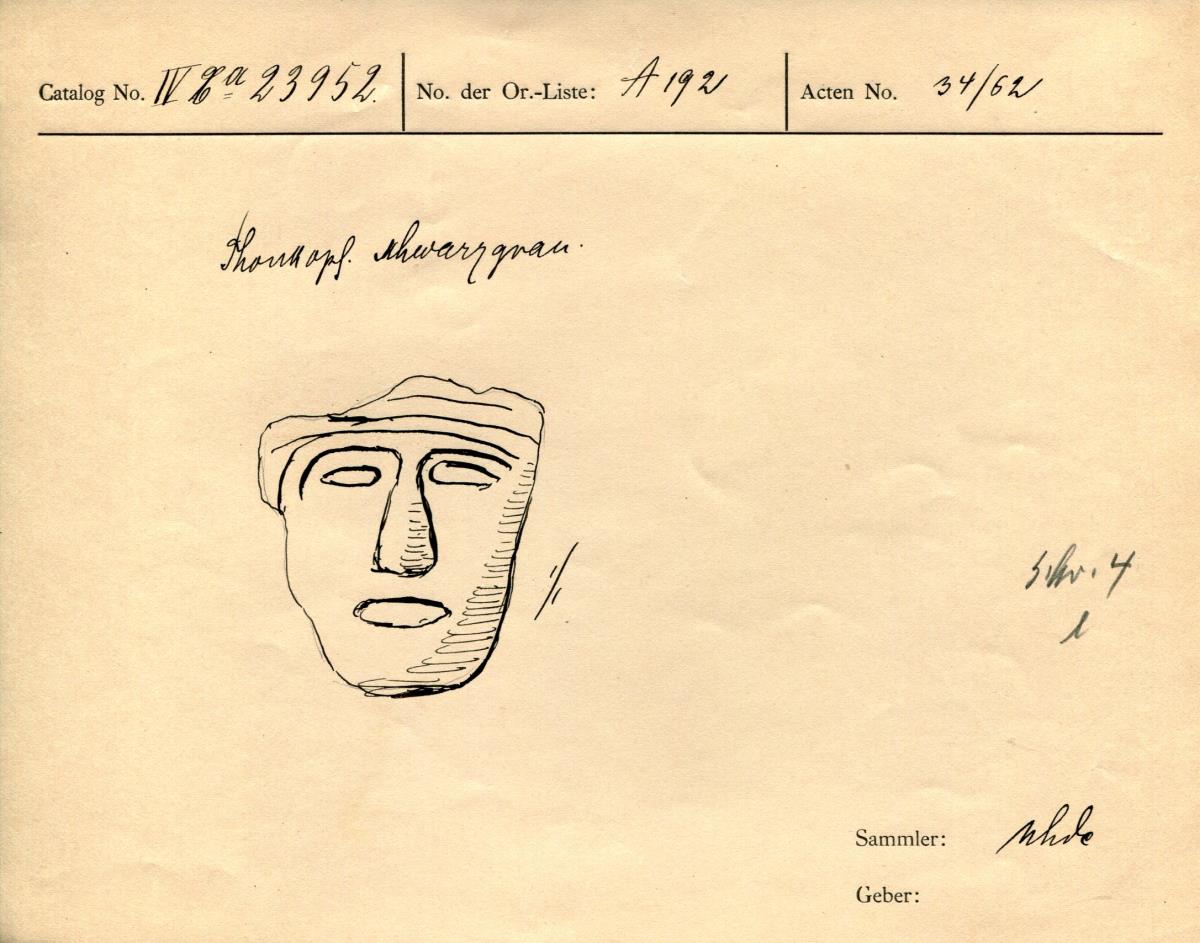 Catalog No. IV Ca 23952. No. der Or.-Liste: A 192 Acten No. 34/62
Thonkopf. schwarzgrau.
1/1
Schr. 4
l
Sammler: Uhde
Geber: